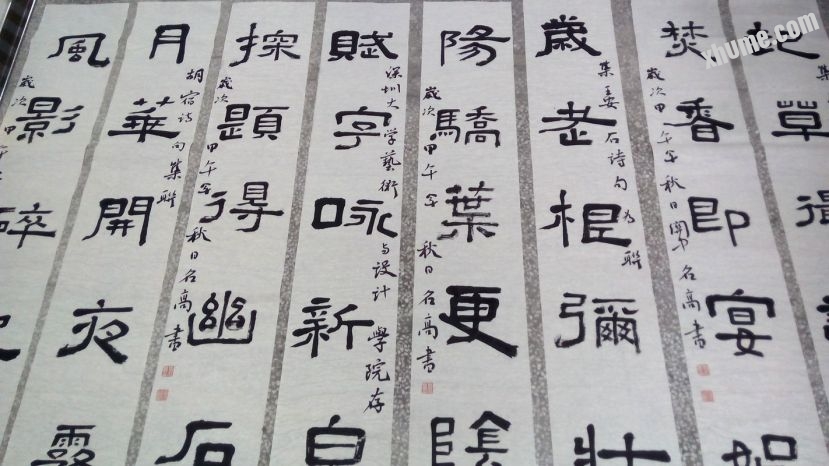 草
焚香即宴如
歲次甲午年秋日 名高書
歲老根彌壯
集 石詩句為聯
陽驕葉更陰
歲次甲午年秋日名高書
賦字咏新
深圳大學藝術与設計學院存
探題得幽石
歲次甲午年秋日名高書
月華開夜
胡宿詩句集聯
風影碎
歲次甲午
xhume.com